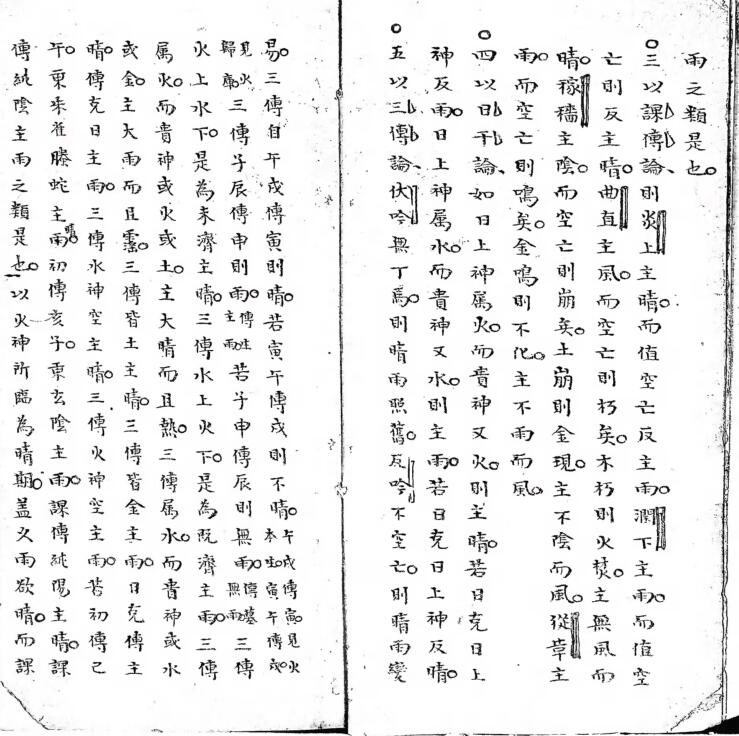 雨之類是也
三以課傳論則炎上主晴而值空亡反主雨潤下主雨而值空
亡則反主晴曲直主風而空亡則朽矣木朽則火焚主無風而
晴稼穡主陰而空亡則崩矣土崩則金現主不陰而風從革主
雨而空亡則鳴矣金鳴則不化主不雨而風
四以日干論如日上神属火而貴神又火則主晴若日克日上
神反雨日上神属水而貴神又水則主雨若日克日上神反晴
五以三傳論伏吟無丁馬則晴雨照舊反吟不空亡則晴雨變
易三傳自午戌傳寅則晴若寅午傳戌則不晴午戌傳寅見火本生寅午傳戌
見火歸庫三傳子辰傳申則雨傳生主雨若子申傳辰則無雨傳墓無雨三傳
火上水下是為未濟主晴三傳水上火下是為既濟主雨三傳
属火而貴神或火或土主大晴而且熱三傳属水而貴神或水
或金主大雨而且靈三傳皆土主晴三傳皆金主雨日克傳主
晴傳克日主雨三傳水神空主晴三傳火神空主雨若初傳巳
午乘朱雀螣蛇主雨晴初傳亥子乘玄陰主雨課傳純陽主晴課
傳純陰主雨之類是也以火神所臨為晴期蓋久雨欲晴而課